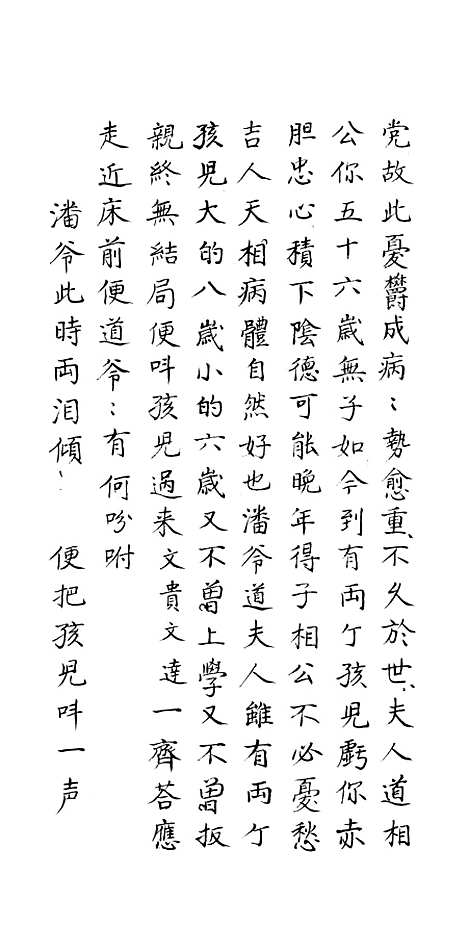 党故此憂欝成病〻勢愈重、不久於世、夫人道相
公你五十六歲無子如今到有両亇孩児虧你赤
胆忠心積下陰德可能晚年得子相公不必憂愁
吉人天相病體自然好也潘爷道夫人雖有両亇
孩児大的八歲小的六歲又不曽上學又不曽扳
親終無結局便呌孩児過来文貴文達一齊荅應
走近床前便道爷〻有何吩咐
潘爷此時両泪傾、　便把孩児呌一声